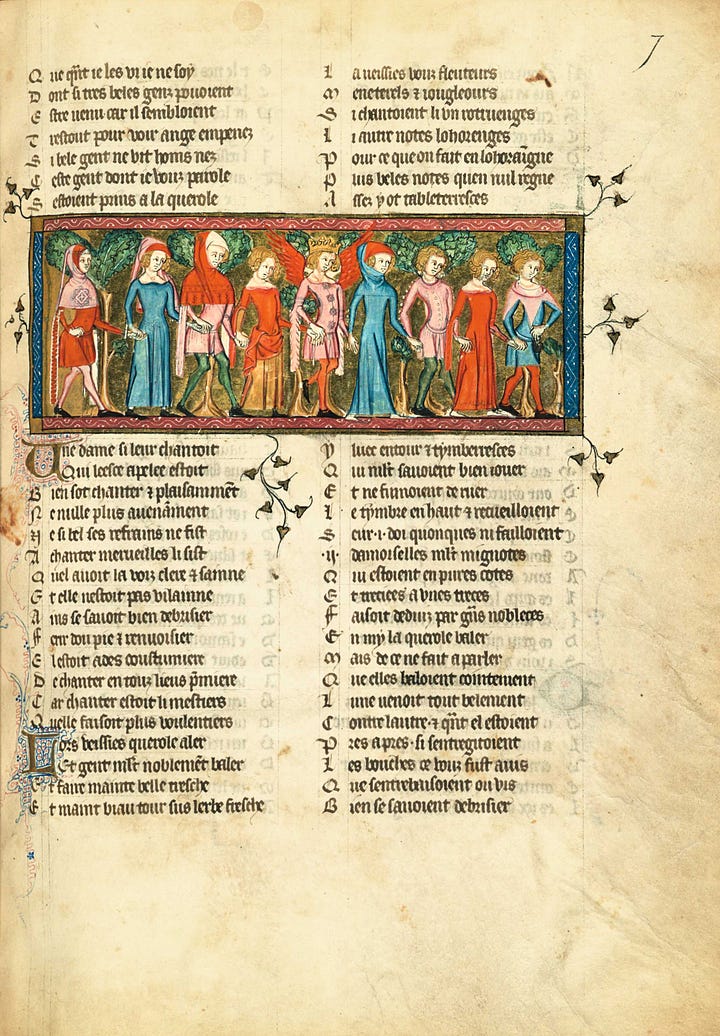 7
Que qñt ie les vi ie ne soy
Dont si tres beles genz pouoient
Estre venu car il sembloient
Trestout pour voir ange empenez
Si bele gent ne vit homs nez
Ceste gent dont ie vous parole
Sestoient prins a la querole
Une dame si leur chantoit
Qui leesce apelee estoit
Bien sot chanter ⁊ plaisammēt
Ne nulle plus auenāment
Ne si bel ses refrains ne fist
A chanter merueilles li sist
Quel auoit la voiz clere ⁊ sainne
Et elle nestoit pas vilainne
Ains se sauoit bien debrisier
Ferir dou pie ⁊ renuoisier
Elestoit ades coustumiere
De chanter en touz lieus p̄miere
Car chanter estoit li mestiers
Quelle faisoit plus voulentiers
Lors veissies querole aler
Et gent mlt noblemēt baler
Et faire mainte belle tresche
Et maint biau tour sus lerbe fresche
La veissies vous fleuteurs
Meneterels ⁊ iougleours
Si chantoient li vn rotruenges
Li autre notes lohorenges
Pour ce que on fait en lohoraīgne
Plus beles notes quen nul regne
Assez y ot tableterresces
Yluec entour ⁊ tymberresces
Qui mlt sauoient bien iouer
Et ne finnoient de ruer
Le tymbre en haut ⁊ recueilloient
Seur .i. doi quonques ni failloient
.ij. damoiselles mlt mignotes
Qui estoient en pures cotes
Et trecies a vnes treces
Faisoit deduiz par gñs nobleces
En my la querole baler
Mais de ce ne fait a parler
Que elles baloient cointement
Lune venoit tout belement
Contre lautre ⁊ qñt el estoient
Pres a pres si sentregitoient
Les bouches ce vous fust auis
Que sentrebaisoient ou vis
Bien se sauoient debrisier